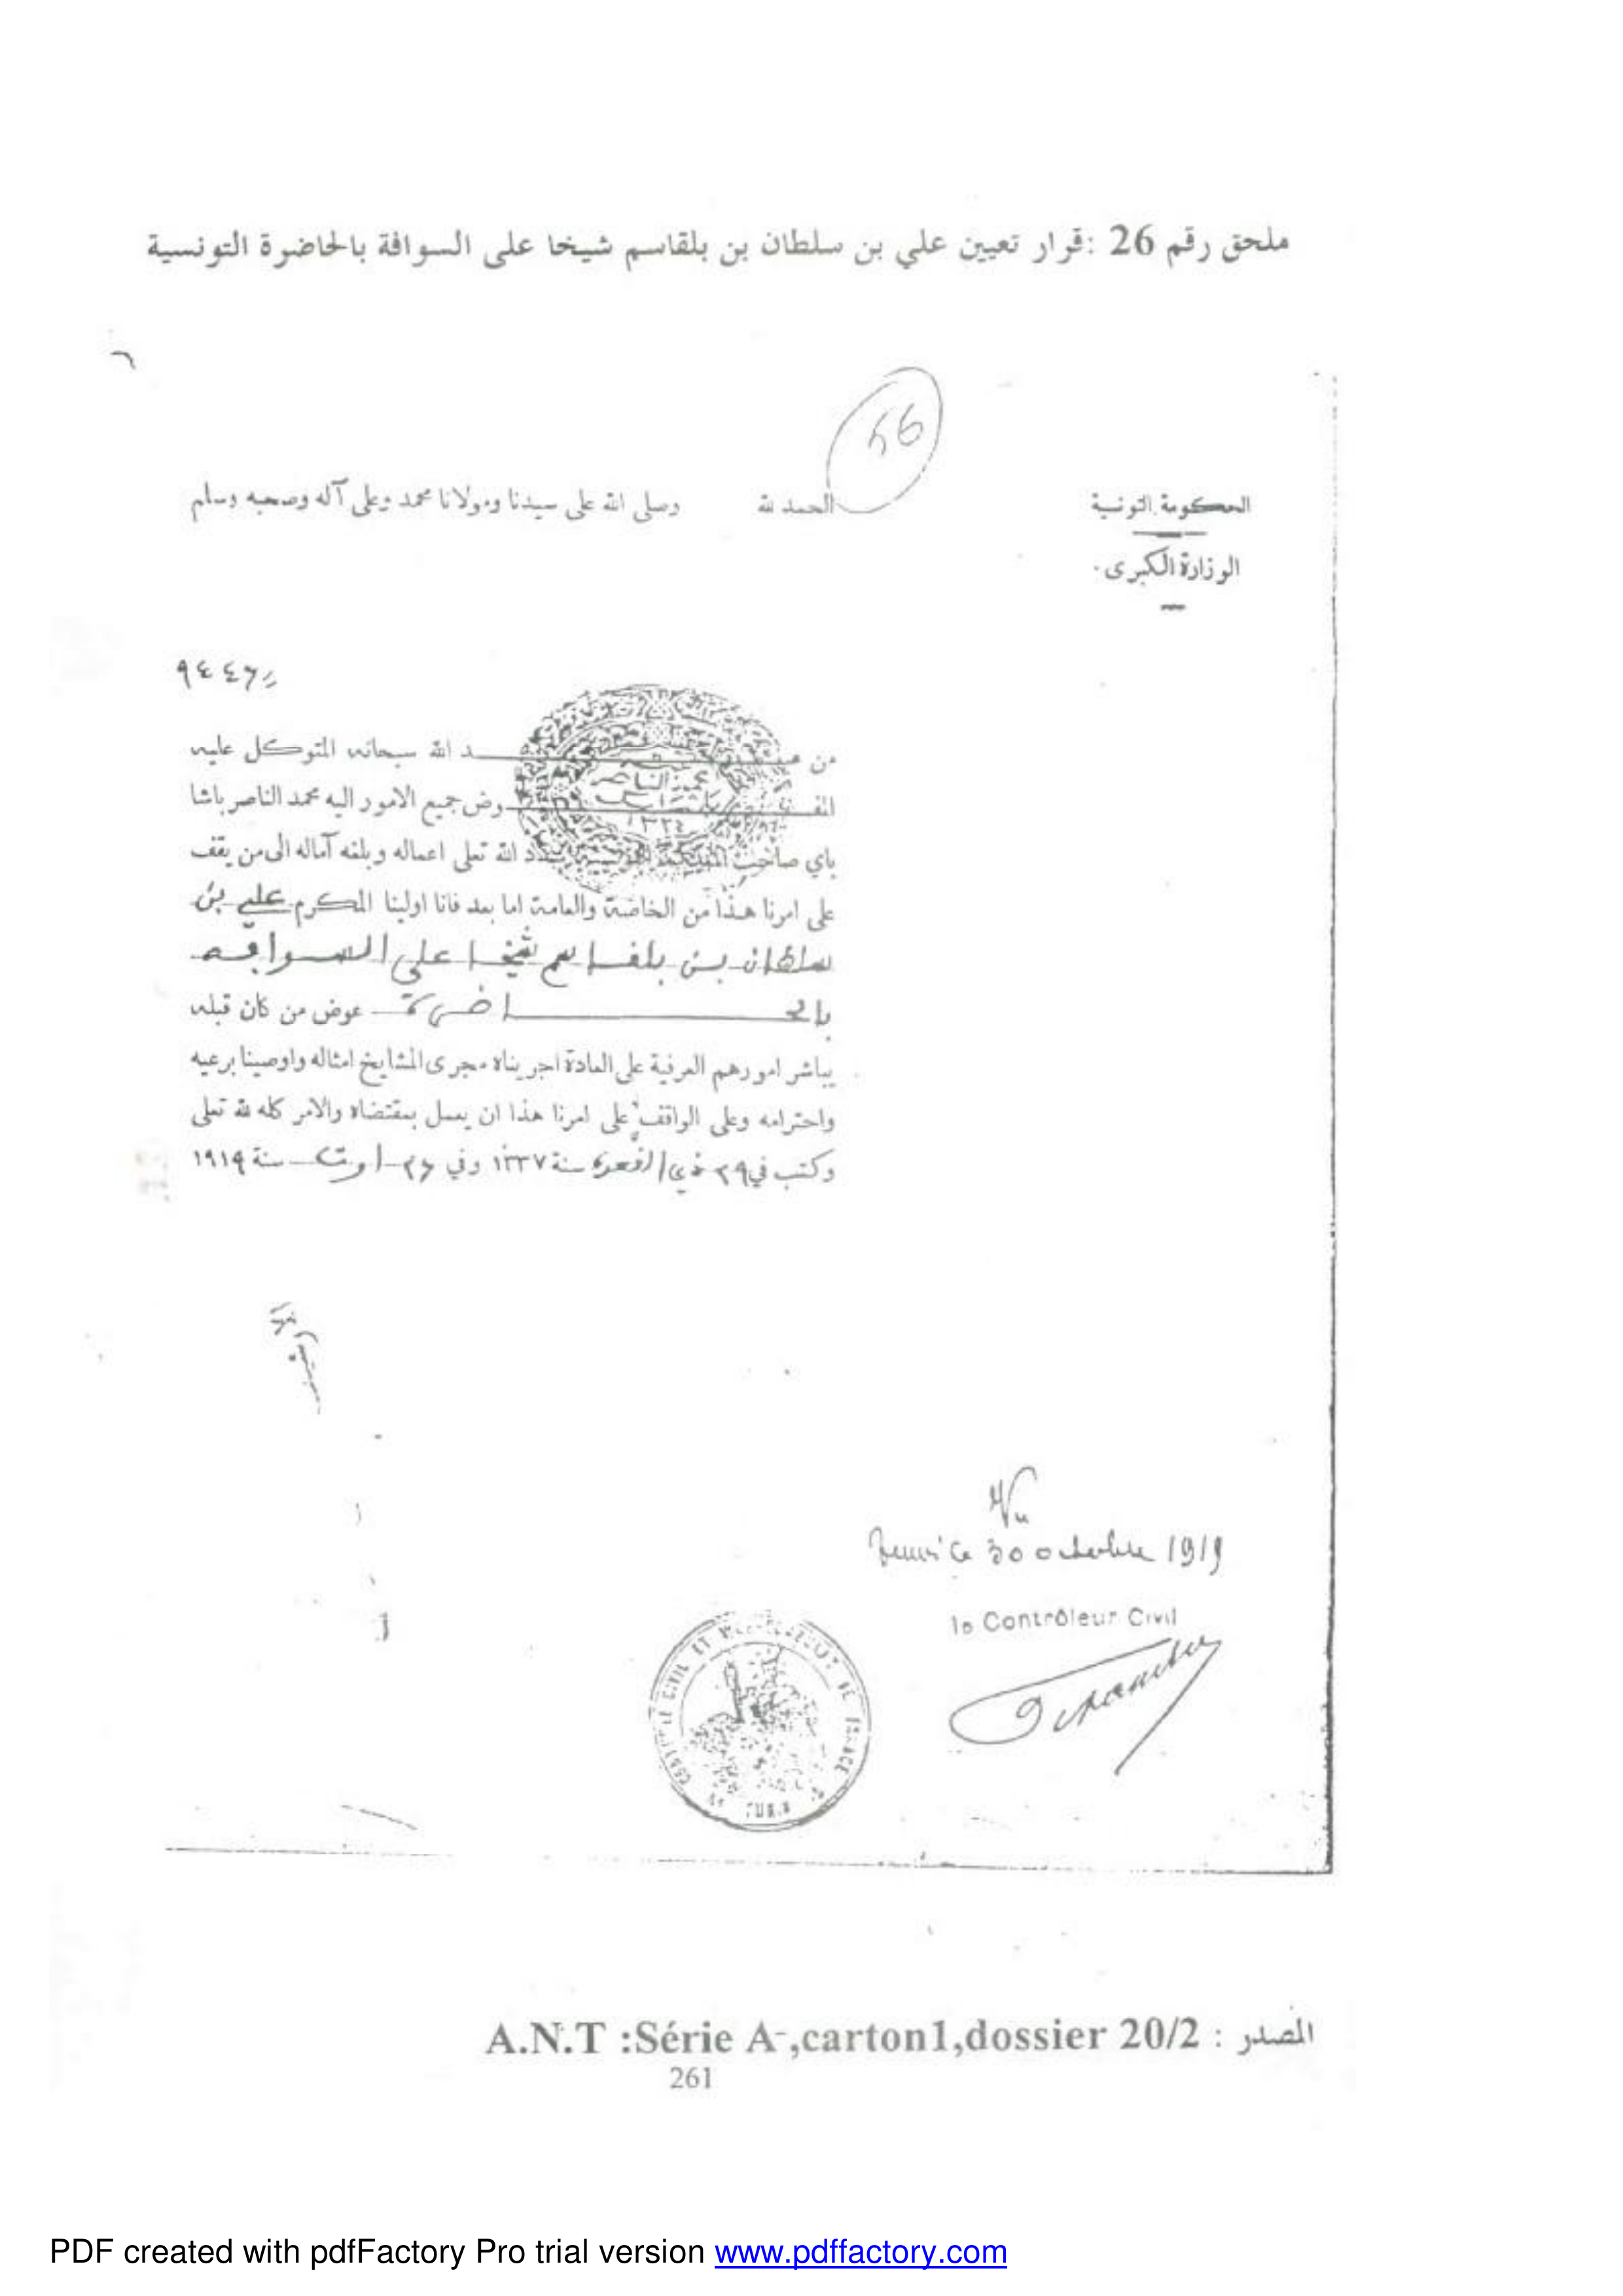 ملحق رقم 26 :قرار تعيين علي بن سلطان بن بلقاسم شيخا على السوافة بالحاضرة التونسية
56
الحكومة التونسية
الحمد لله وصلى الله على سيدنا ومولانا محمد وعلى آله وصحبه وسلم
الوزارة الكبرى
من عبـــد الله سبحانه المتوكل عليه
المفـــوض جميع الامور اليه محمد الناصر باشا
باي صاحب المملكة التونسية سدد الله تعلى اعماله وبلغه آماله الى من يقف
على امرنا هذا من الخاصة والعامة اما بعد فانا اولينا المكرم علي بن
سلطان بن بلقاسم شيخا على السوافه
بالحـــاضرة عوض من كان قبله
يباشر امورهم العرفية على العادة اجريناه مجرى المشايخ امثاله واوصينا برعيه
واحترامه وعلى الواقف على امرنا هذا ان يعمل بمقتضاه والامر كله لله تعلى
وكتب في ٢٩ ذي القعدة سنة ١٣٣٧ وفي ٢٦ اوت سنة ١٩١٩
Vu
Tunis Ce 30 octobre 1919
le Contrôleur Civil
المصدر : A.N.T :Série A-,carton1,dossier 20/2
261
PDF created with pdfFactory Pro trial version www.pdffactory.com